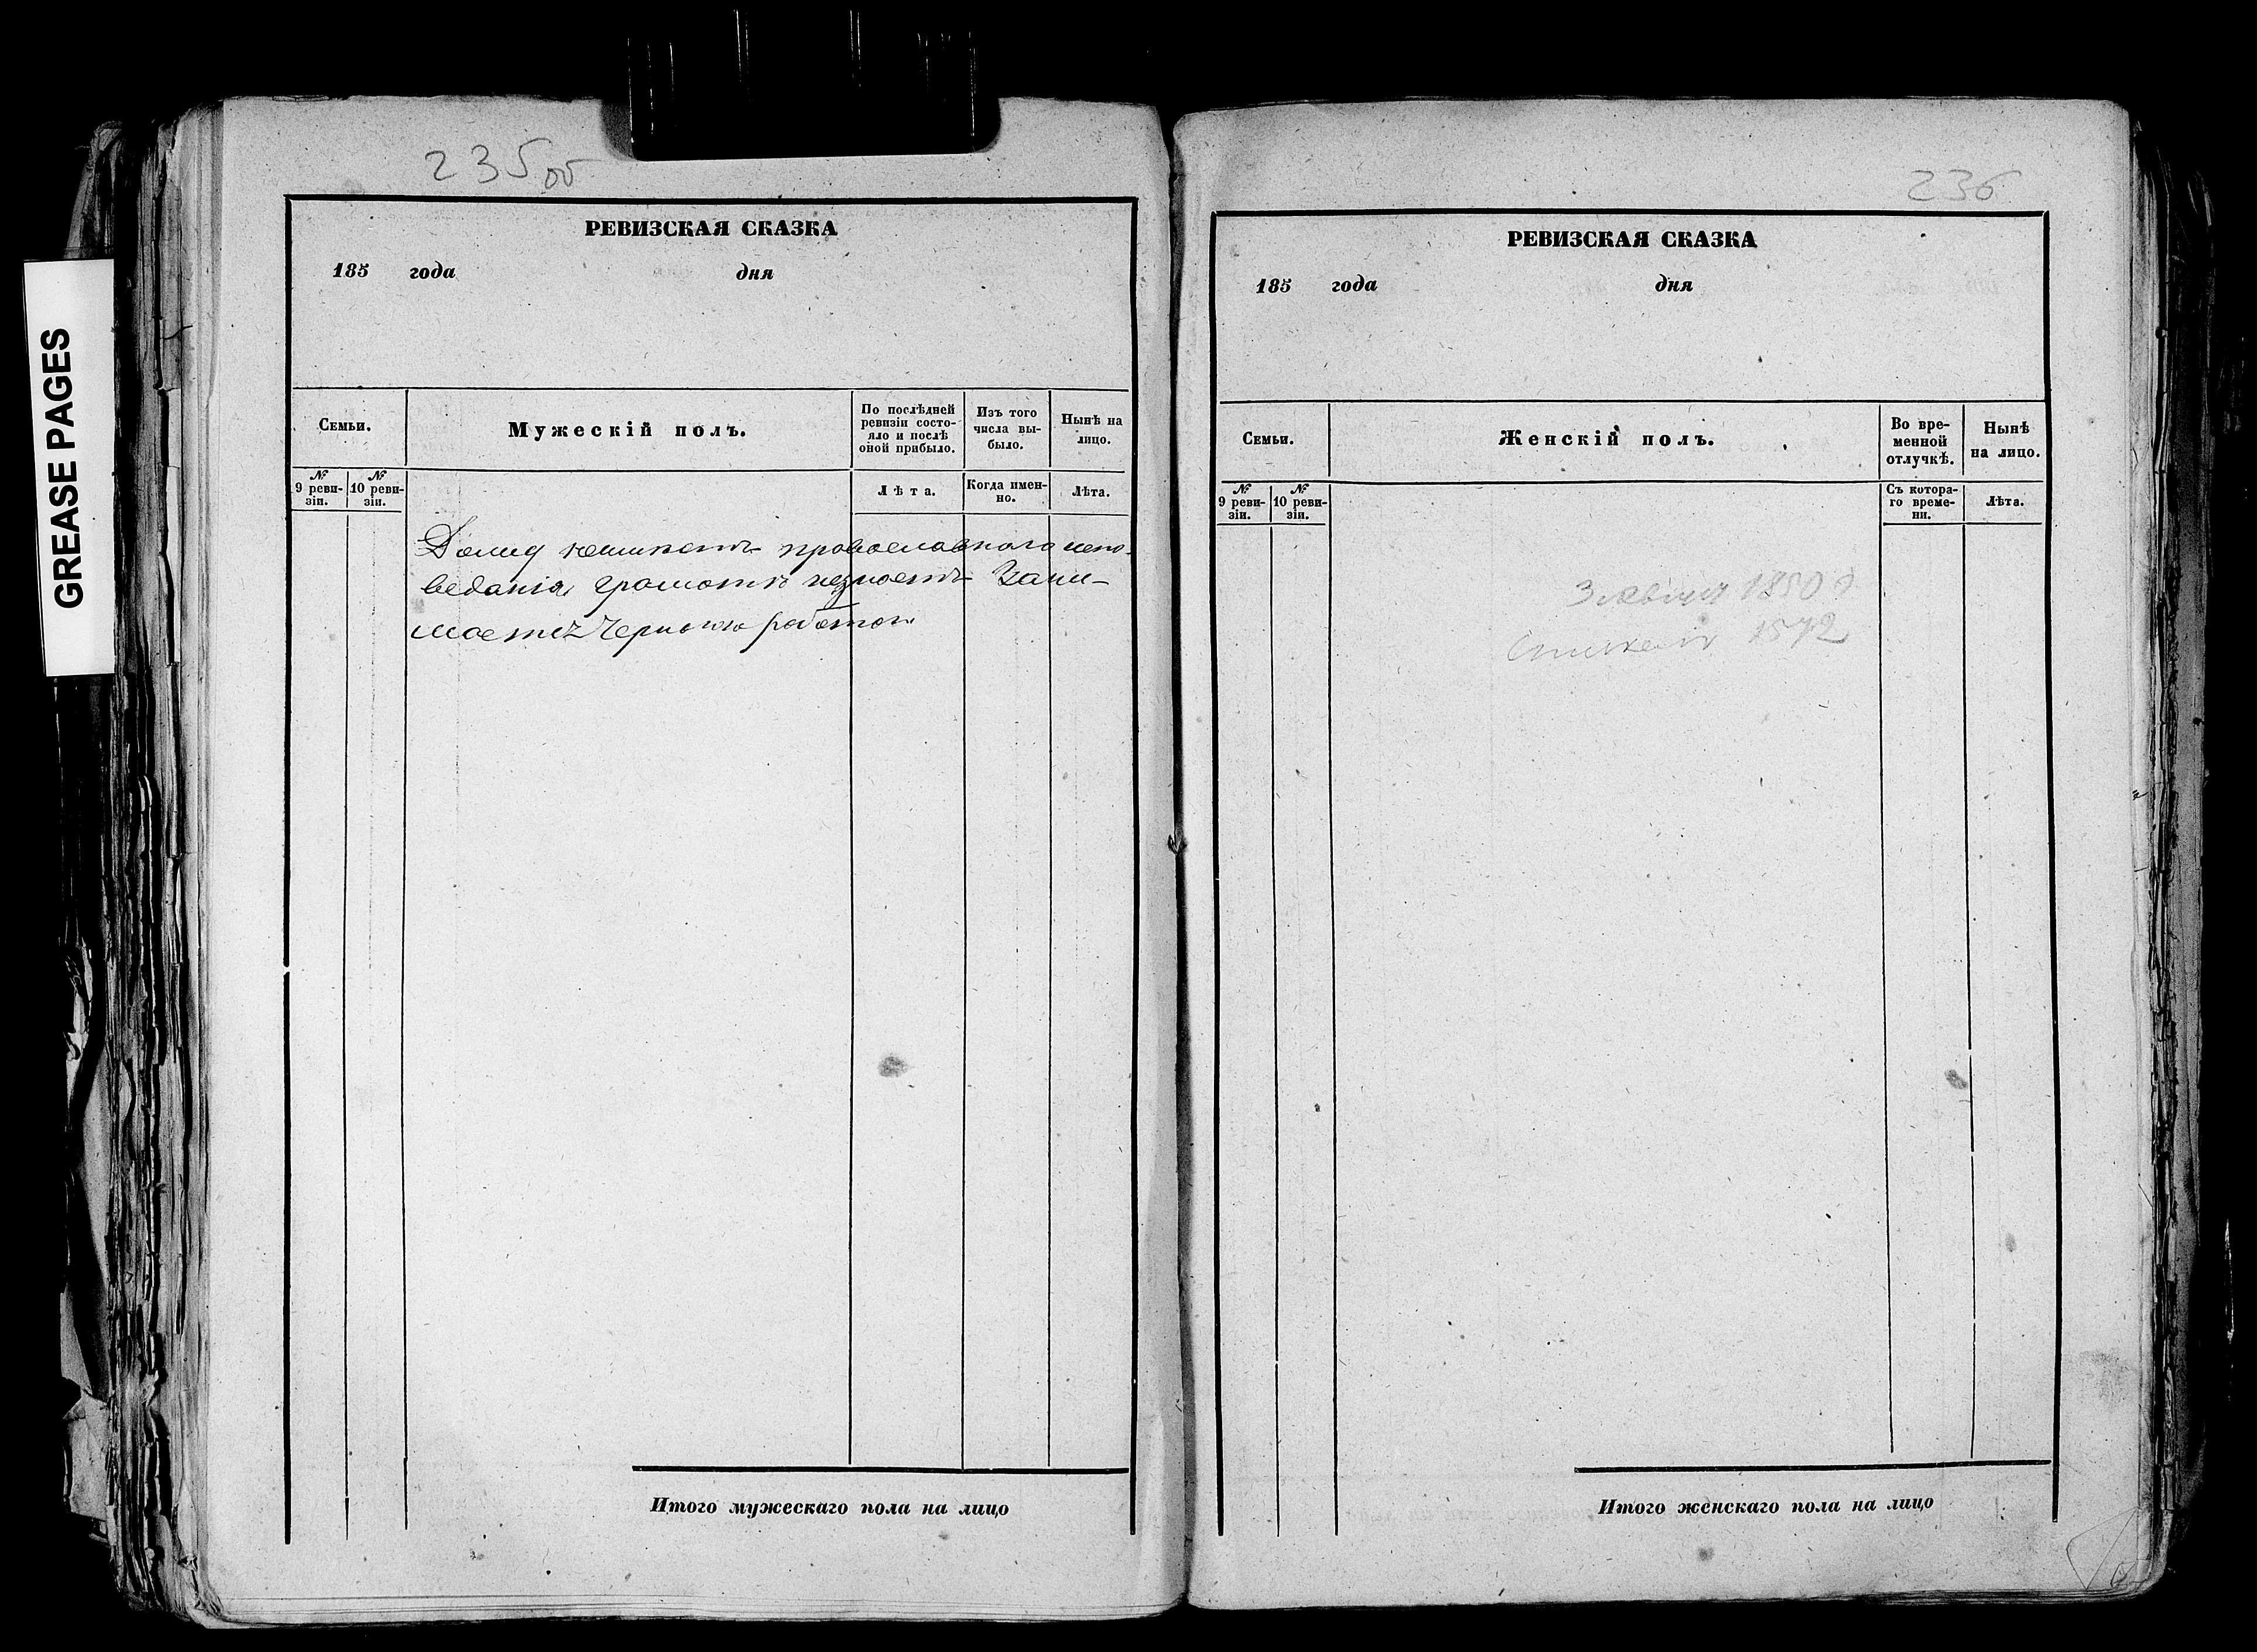 GREASE PAGES
235 об
РЕВИЗСКАЯ СКАЗКА
185 года дня
Семьи.
Мужескій полъ.
По послѣдней ревизіи состо-
яло и послѣ оной прибыло.
Изъ того числа вы-
было.
Нынѣ на лицо.
№ 9 реви-
зіи.
№ 10 реви-
зіи.
Лѣта.
Когда имен-
но.
Лѣта.
православнаго испо-
веданія грамоть незнаетъ Зани-
маетца Черною работою
Итого мужескаго пола на лицо
236
РЕВИЗСКАЯ СКАЗКА
185 года дня
Семьи.
Женскій полъ.
Во вре-
менной
отлучкѣ.
Нынѣ
на лицо.
№ 9 реви-
зіи.
№ 10 реви-
зіи.
Съ котора-
го време-
ни.
Лѣта.
1850
1572
Итого женскаго пола на лицо